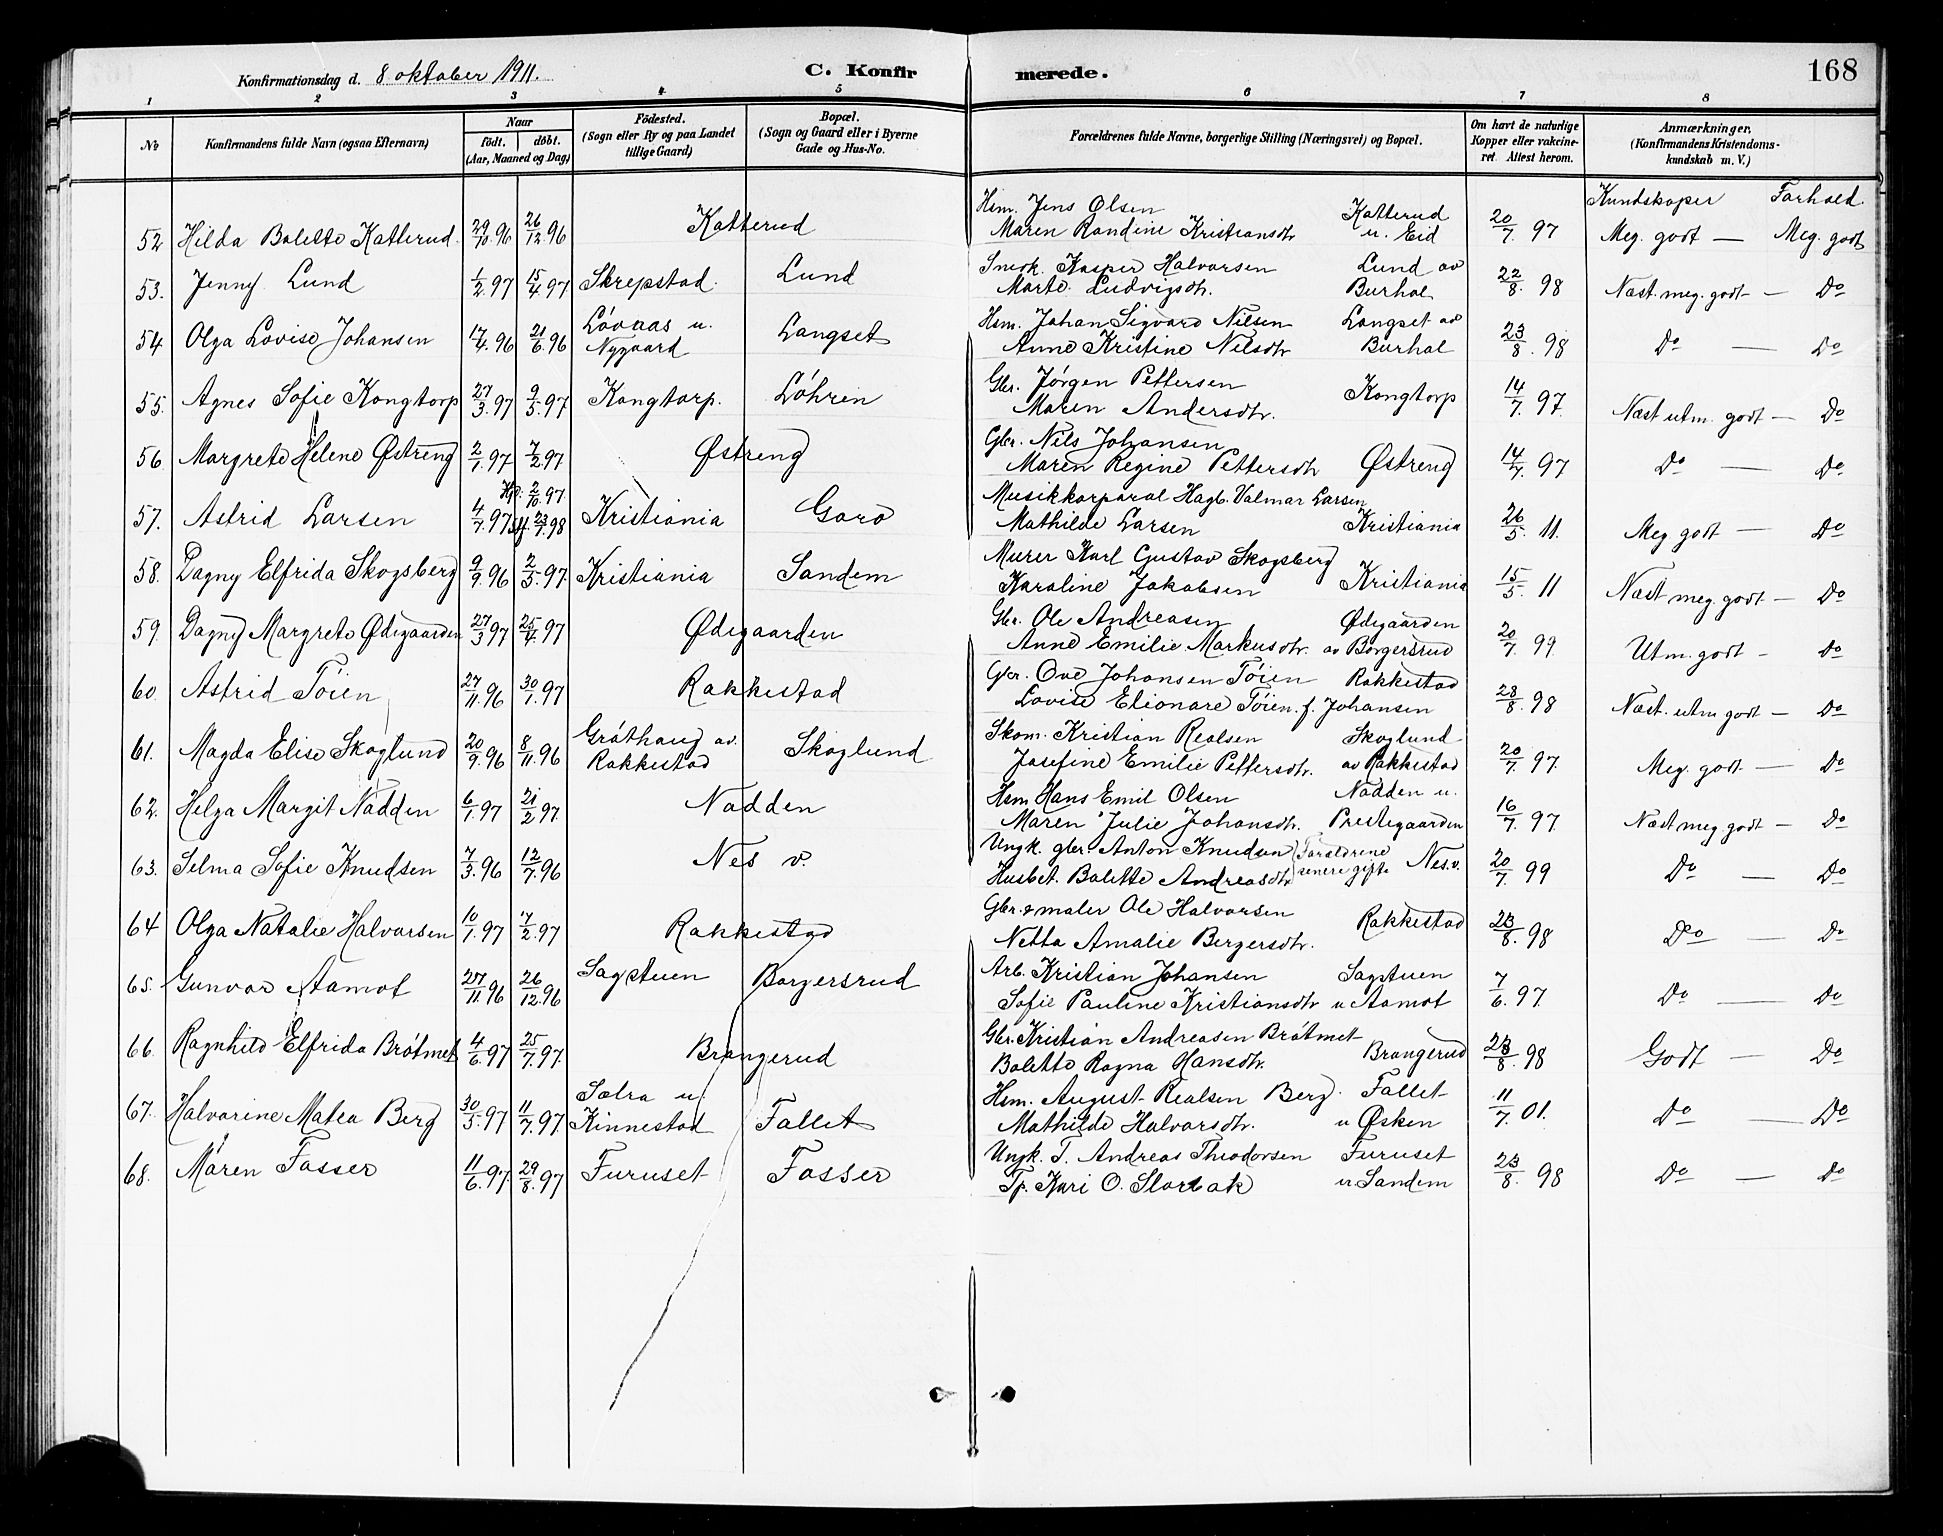 Konfirmationsdag d. 8 oktober 1911.
C. Konfirmerede.
168
1 2 3 4 5 6 7 8
No
Konfirmandens fulde Navn (ogsaa Efternavn)
Naar
födt. döbt.
(Aar, Maaned og Dag)
Födested.
(Sogn eller By og paa Landet
tillige Gaard)
Bopæl.
(Sogn og Gaard eller i Byerne
Gade og Hus-No.
Forældrenes fulde Navne, borgerlige Stilling (Næringsvei) og Bopæl.
Om havt de naturlige
Kopper eller vakcine-
ret. Attest herom.
Anmærkninger.
(Konfirmandens Kristendoms-
kundskab m. V.)
Kundskaper Forhold.
52 Hilda Bolette Katterud 29/10.96 26/12.96 Katterud Hsm. Jens Olsen Katterud
Maren Randine Kristiansdtr u. Eid 20/7. 97 Meg. godt — Meg. godt
53. Jenny Lund 1/2.97 15/4.97 Skrepstad. Lund Snedk. Kasper Halvorsen Lund av
Marte Ludvigsdtr. Burhol 22/8. 98 Næst. meg. godt — Do
54 Olga Lovise Johansen 17/4.96 21/6.96 Lövaas u. Nygaard Langset Hsm. Johan Sigvard Nilsen Langset av
Anne Kristine Nilsdtr Burhol 23/8. 98 Do — Do
55. Agnes Sofie Kongtorp 27/3.97 9/5.97 Kongtorp. Löhren Gbr. Jörgen Pettersen Kongtorp
Maren Andersdtr. 14/7. 97 Næst utm. godt — Do
56 Margrete Helene Østreng 2/1.97 7/2.97 Østreng Gbr. Nils Johansen
Maren Regine Pettersdtr Østreng 14/7 97 Do — Do
57. Astrid Larsen 4/7.97 Hjd. 2/10.97 Stf. 23/7.98 Kristiania Garo Musikkorporal Hagb. Valmar Larsen
Mathilde Larsen Kristiania 26/5. 11. Meg godt — Do
58. Dagny Elfrida Skogsberg 9/9.96 2/5.97 Kristiania Sandem Murer Karl Gustav Skogsberg
Karoline Jakobsen Kristiania 15/5. 11 Næst meg. godt — Do
59. Dagny Margrete Ødegaarden 27/3 97 25/4.97 Ødegaarden Gbr. Ole Andreasen Ødegaarden
Anne Emilie Markusdtr. av Borgersrud 20/7. 99 Utm. godt - Do
60. Astrid Töien 27/11.96 30/1.97 Rakkestad Gbr. Ove Johansen Töien Rakkestad
Lovise Elionare Töien f. Johansen 28/8. 98 Næst. utm godt — Do
61. Magda Elise Skoglund 20/9.96 8/11.96 Gråthaug av. Rakkestad Skoglund Skom. Kristian Realsen Skoglund
Josefine Emilie Pettersdtr. av Rakkestad 20/7. 97. Meg. godt — Do
62. Helga Margit Nadden 6/1.97 21/2 97. Nadden Hsm Hans Emil Olsen Nadden u.
Maren Julie Johansdtr. Prestegaarden 16/7. 97. Næst meg. godt — Do
63. Selma Sofie Knudsen 7/3.96 12/7.96 Nes v. Ungk. gbr. Anton Knudsen (Forældrene
Husbst. Bolette Andreasdtr senere gifte Nes v. 20/7. 99 Do — Do
64 Olga Natalie Halvorsen 10/1.97 7/2.97 Rakkestad Gbr. & maler Ole Halvorsen Rakkestad
Netta Amalie Bergersdtr. 23/8. 98 Do — Do
65. Gunvor Aamot 27/11.96 26/12.96 Sagstuen Borgersrud Arb. Kristian Johansen Sagstuen
Sofie Pauline Kristiansdtr u Aamot 7/6. 97 Do — Do
66. Ragnhild Elfrida Bråtmet 4/6.97 25/7.97. Brangerud Gbr. Kristian Andreasen Bråtmet
Bolette Ragna Hansdtr. Brangerud 23/8. 98 Godt — Do
67. Halvorine Matea Berg 30/5.97 11/7.97 Sælra u. Kinnestad Fallet Hsm. August Realsen Berg. Fallet
Mathilde Halvorsdtr. u Øsken 11/7. 01. Do — Do
68. Maren Fosser 11/6.97. 29/8.97 Furuset Fosser Ungk. T. Andreas Theodorsen Furuset
Tp. Kari O. u Sandem 23/8. 98 Do — Do